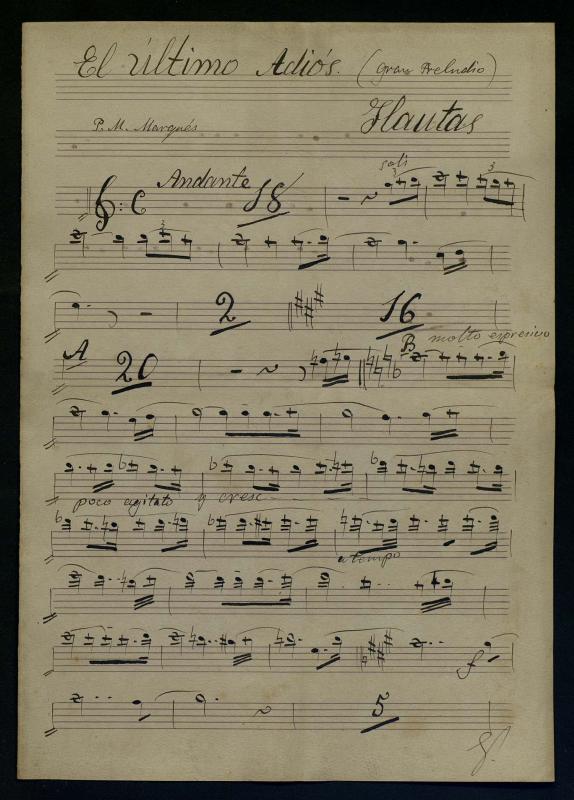 El último Adiós. (Gran Preludio)
P. M. Marqués
Flautas
Andante
18
soli
3
3
3
2
16
A
20
B
molto espresivo
poco agitato y cresc
a tempo
f
5